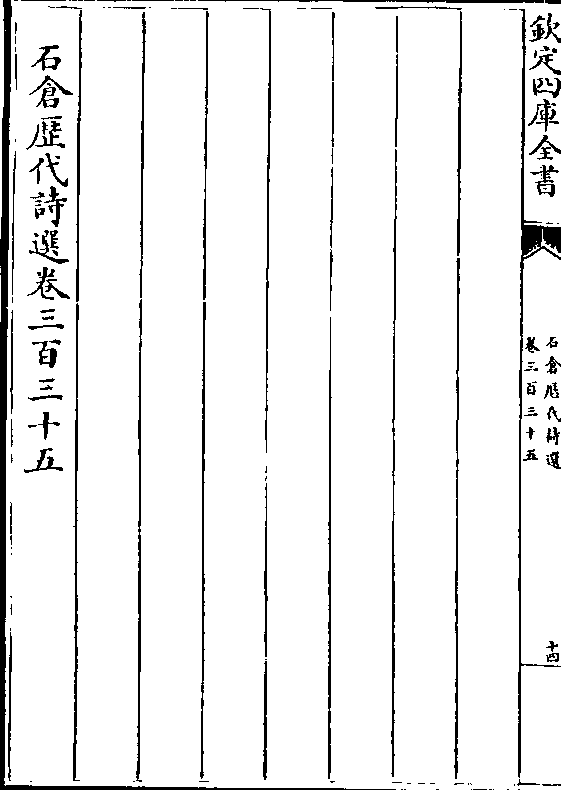 欽定四庫全書
石倉歴代詩選
卷三百三十五
十四
石倉歴代詩選卷三百三十五